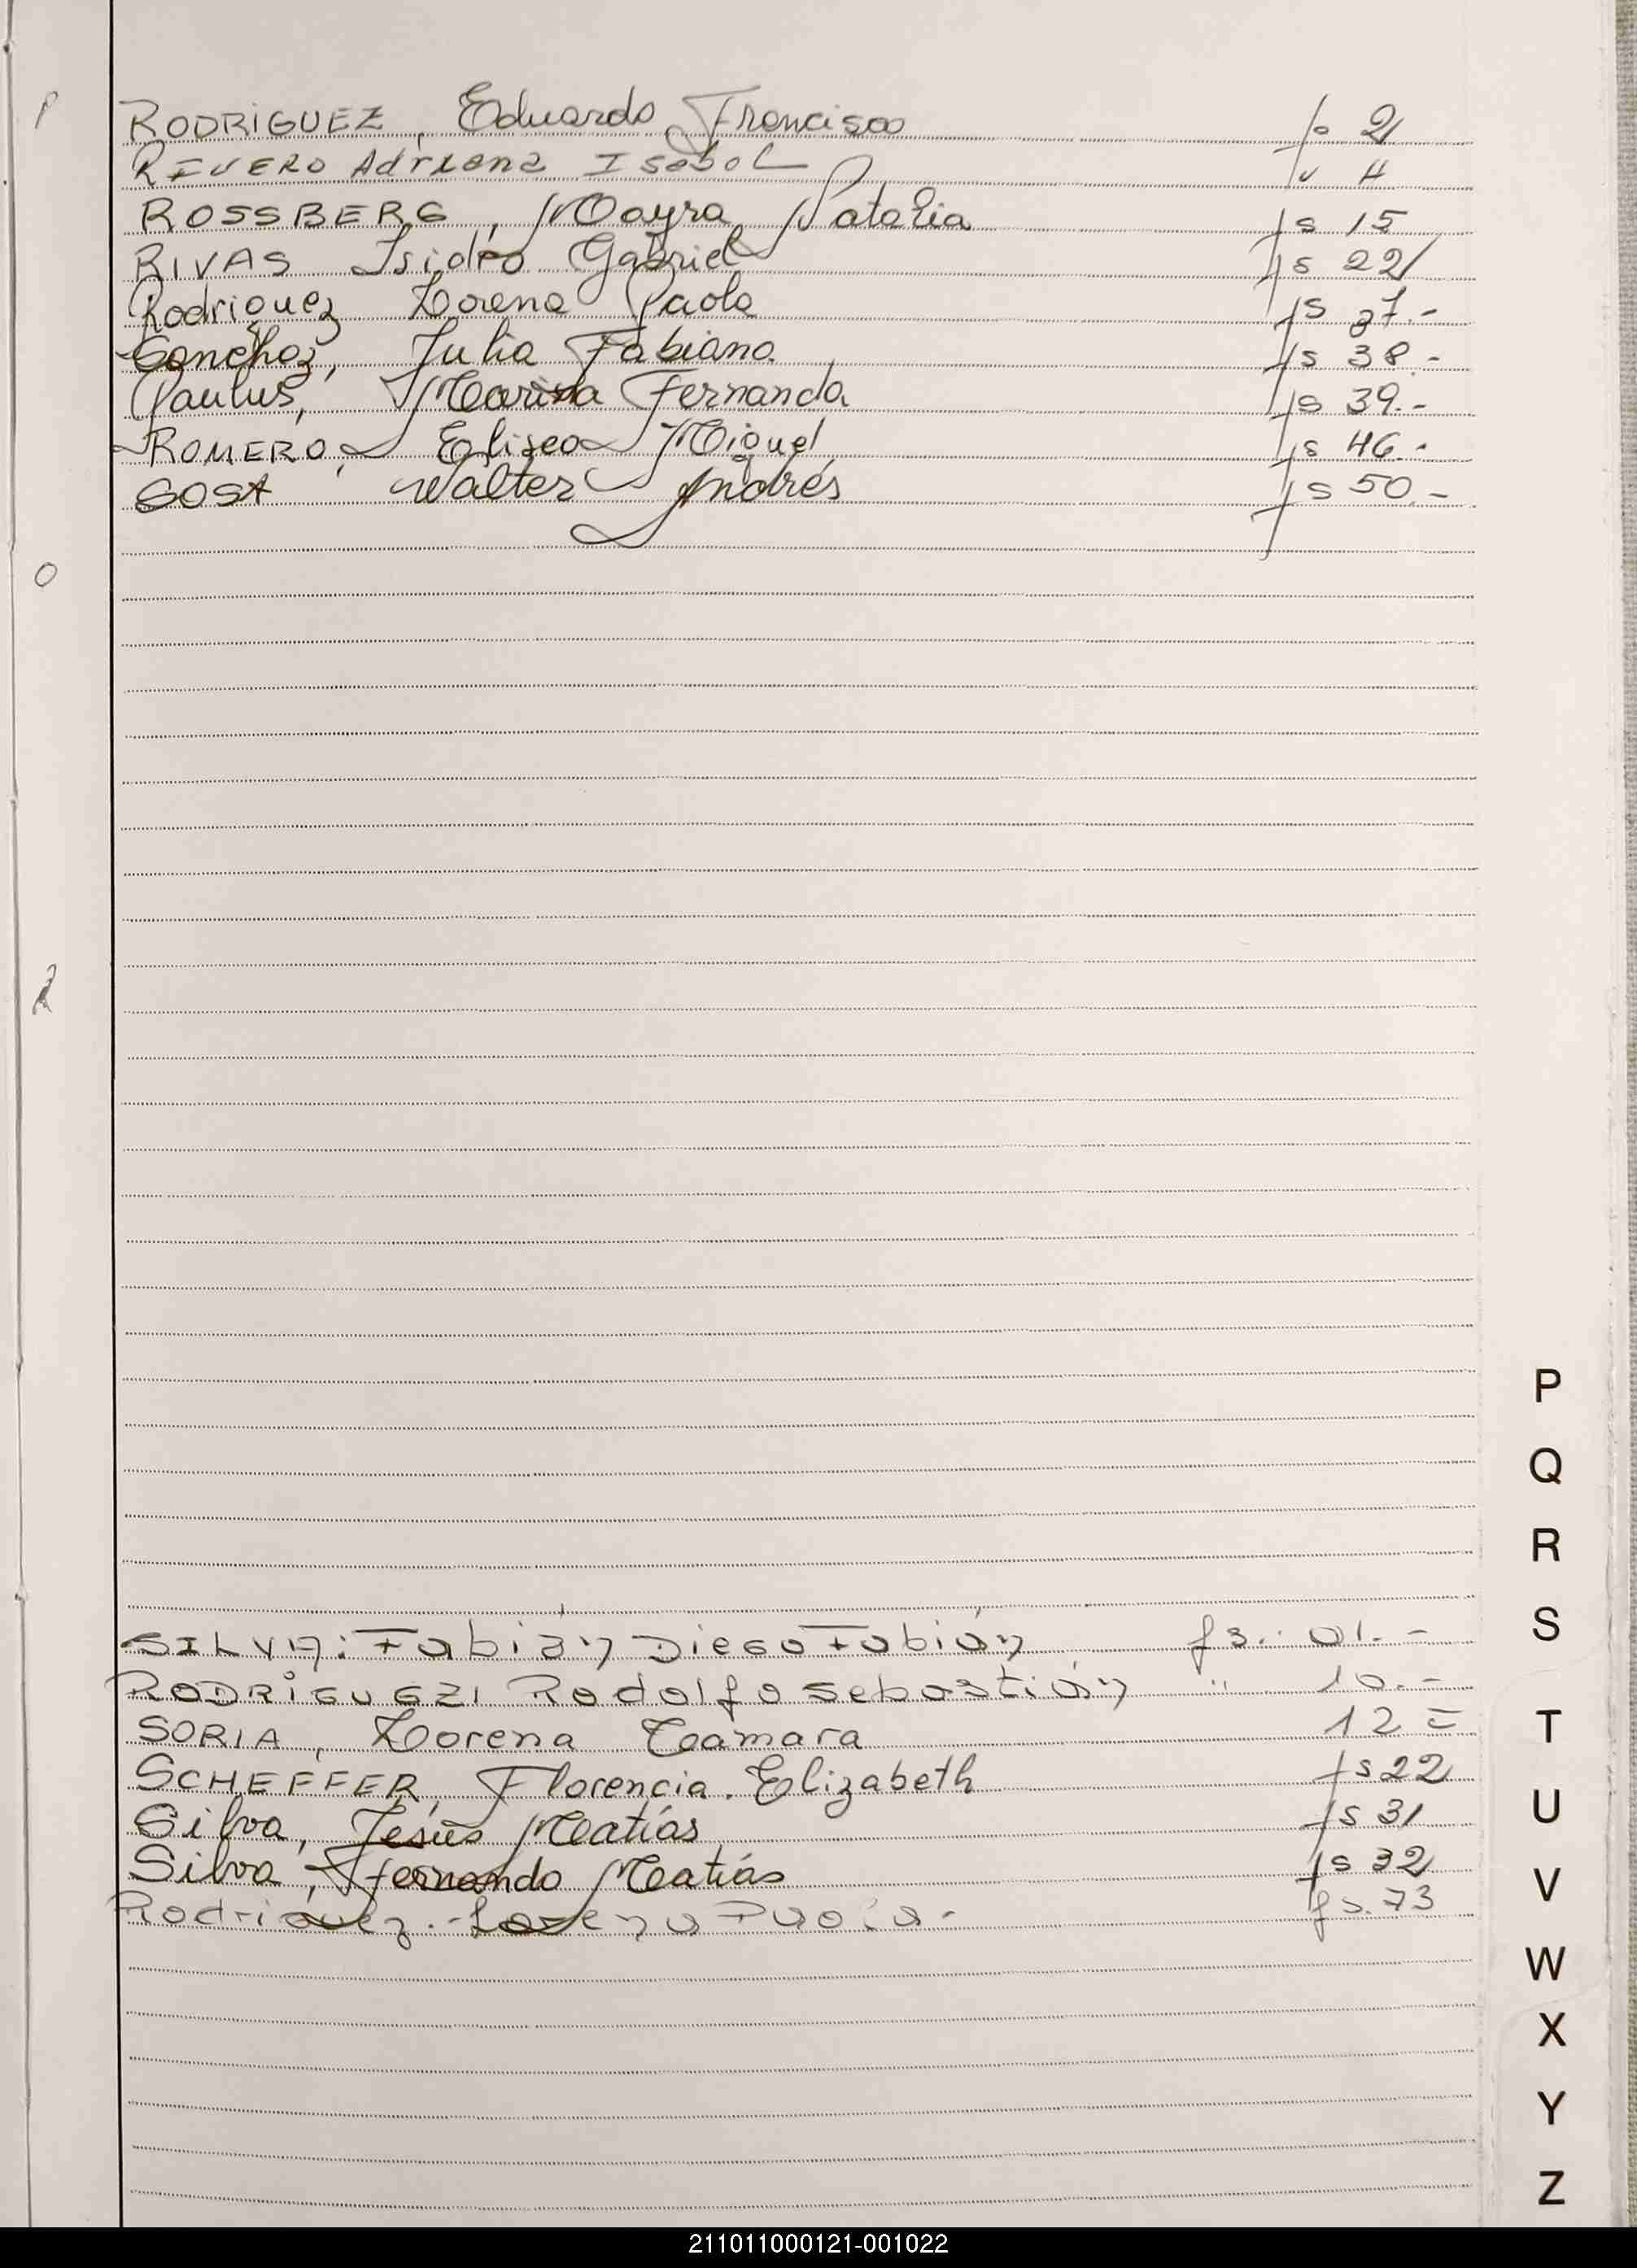 RODRIGUEZ, Eduardo Francisco fs 2
RIVERO Adriana Isabel " 4
ROSSBERG, Mayra Natalia fs 15
RIVAS Isidro Gabriel fs 22
Rodriguez Lorena Paola fs 37.-
Sanchez, Julia Fabiana fs 38.-
Paulus, Marina Fernanda fs 39.-
ROMERO, Eliseo Miguel fs 46.-
SOSA Walter Andrés fs 50.-
P
Q
R
SILVA: Fabián Diego Fabián fs.. 01.-
S
RODRIGUEZ Rodolfo Sebastián " 10.-
SORIA, Lorena Tamara 12=
T
SCHEFFER, Florencia. Elizabeth fs 22
Silva, Jesús Matías fs 31
U
Silva, Fernando Matías fs 32
V
Rodriguez.- Lorena Paola.- fs. 73
W
X
Y
Z
211011000121-001022